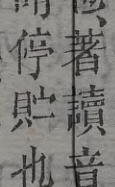 著讀音
停貯也